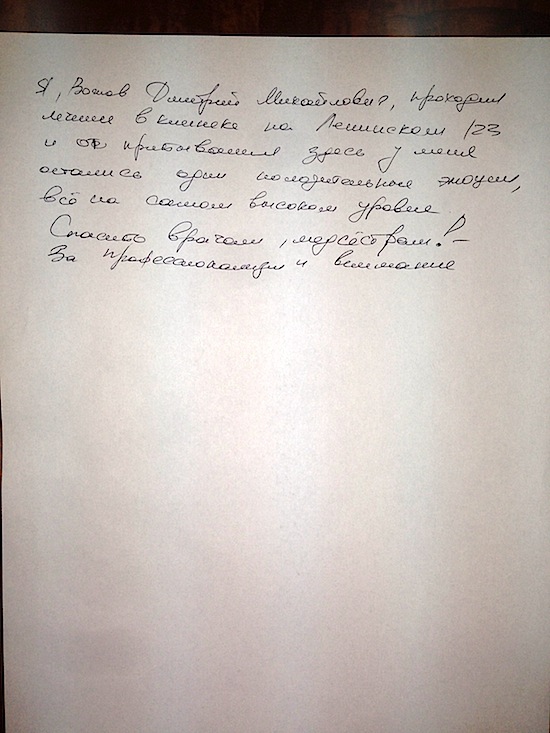 Я, Дмитрий Михайлович, проходил
лечение в клинике на Ленинском 123
и от прибывания здесь у меня
остались одни положительные эмоции,
всё на самом высоком уровне.
Спасибо врачам, медсёстрам! –
За профессионализм и внимание